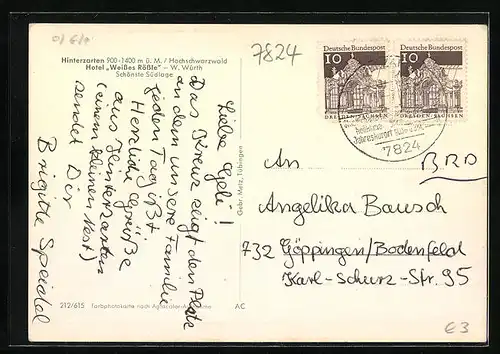 0/6/0
Hinterzarten 900-1400 m ü. M. / Hochschwarzwald
Hotel „Weißes Rößle" – W. Würth
Schönste Südlage
Liebe Geli!
Das Kreuz zeigt den Platz
an dem unsere Familie
jeden Tag ißt.
Herzliche Grüße
aus Hinterzarten
(einem kleinen Nest)
sendet Dir
Brigitte Speidel
212/615 Farbphotokarte nach Agfacolor-Aufnahme AC
Gebr. Metz, Tübingen
7824
Deutsche Bundespost
10
DRESDEN-SACHSEN
Deutsche Bundespost
10
DRESDEN-SACHSEN
heilklimat.
Jahreskurort
7824
An
BRD
Angelika Bausch
732 Göppingen/Bodenfeld
Karl-Schurz-Str. 95
€3